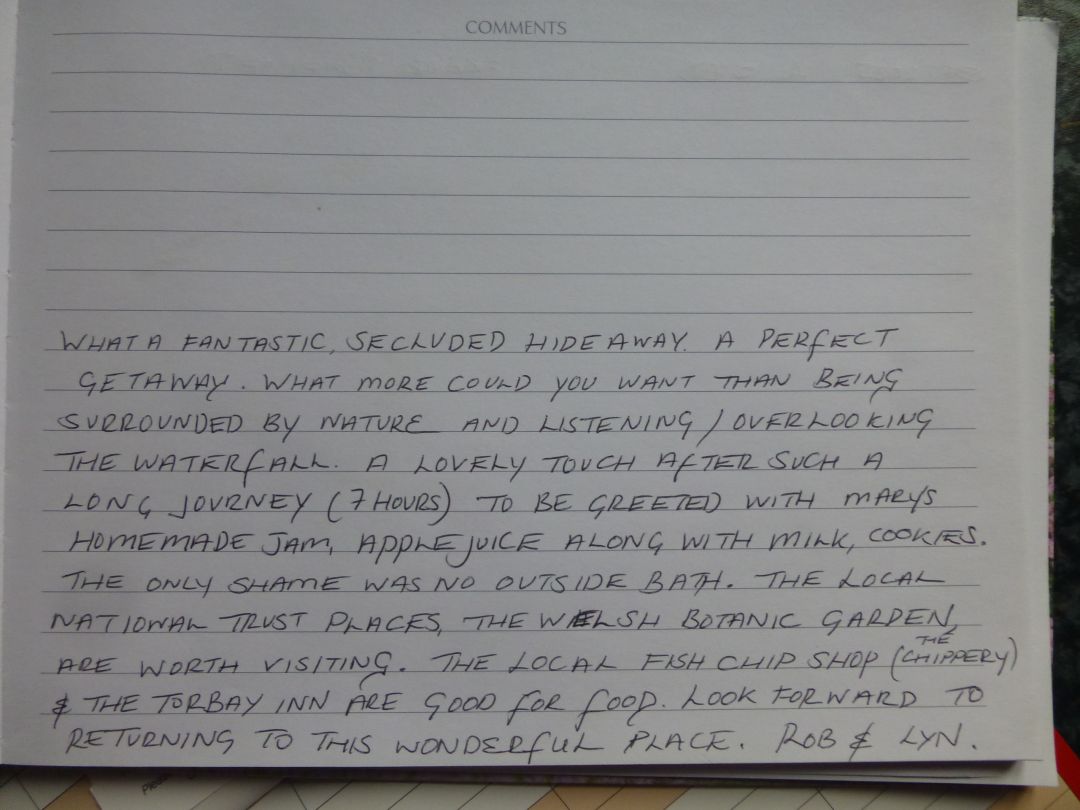 COMMENTS
WHAT A FANTASTIC, SECLUDED HIDEAWAY. A PERFECT
GETAWAY. WHAT MORE COULD YOU WANT THAN BEING
SURROUNDED BY NATURE AND LISTENING / OVERLOOKING
THE WATERFALL. A LOVELY TOUCH AFTER SUCH A
LONG JOURNEY (7 HOURS) TO BE GREETED WITH MARYS
HOMEMADE JAM, APPLE JUICE ALONG WITH MILK, COOKIES.
THE ONLY SHAME WAS NO OUTSIDE BATH. THE LOCAL
NATIONAL TRUST PLACES, THE WELSH BOTANIC GARDEN,
ARE WORTH VISITING. THE LOCAL FISH CHIP SHOP (THE CHIPPERY)
& THE TORBAY INN ARE GOOD FOR FOOD. LOOK FORWARD TO
RETURNING TO THIS WONDERFUL PLACE. ROB & LYN.